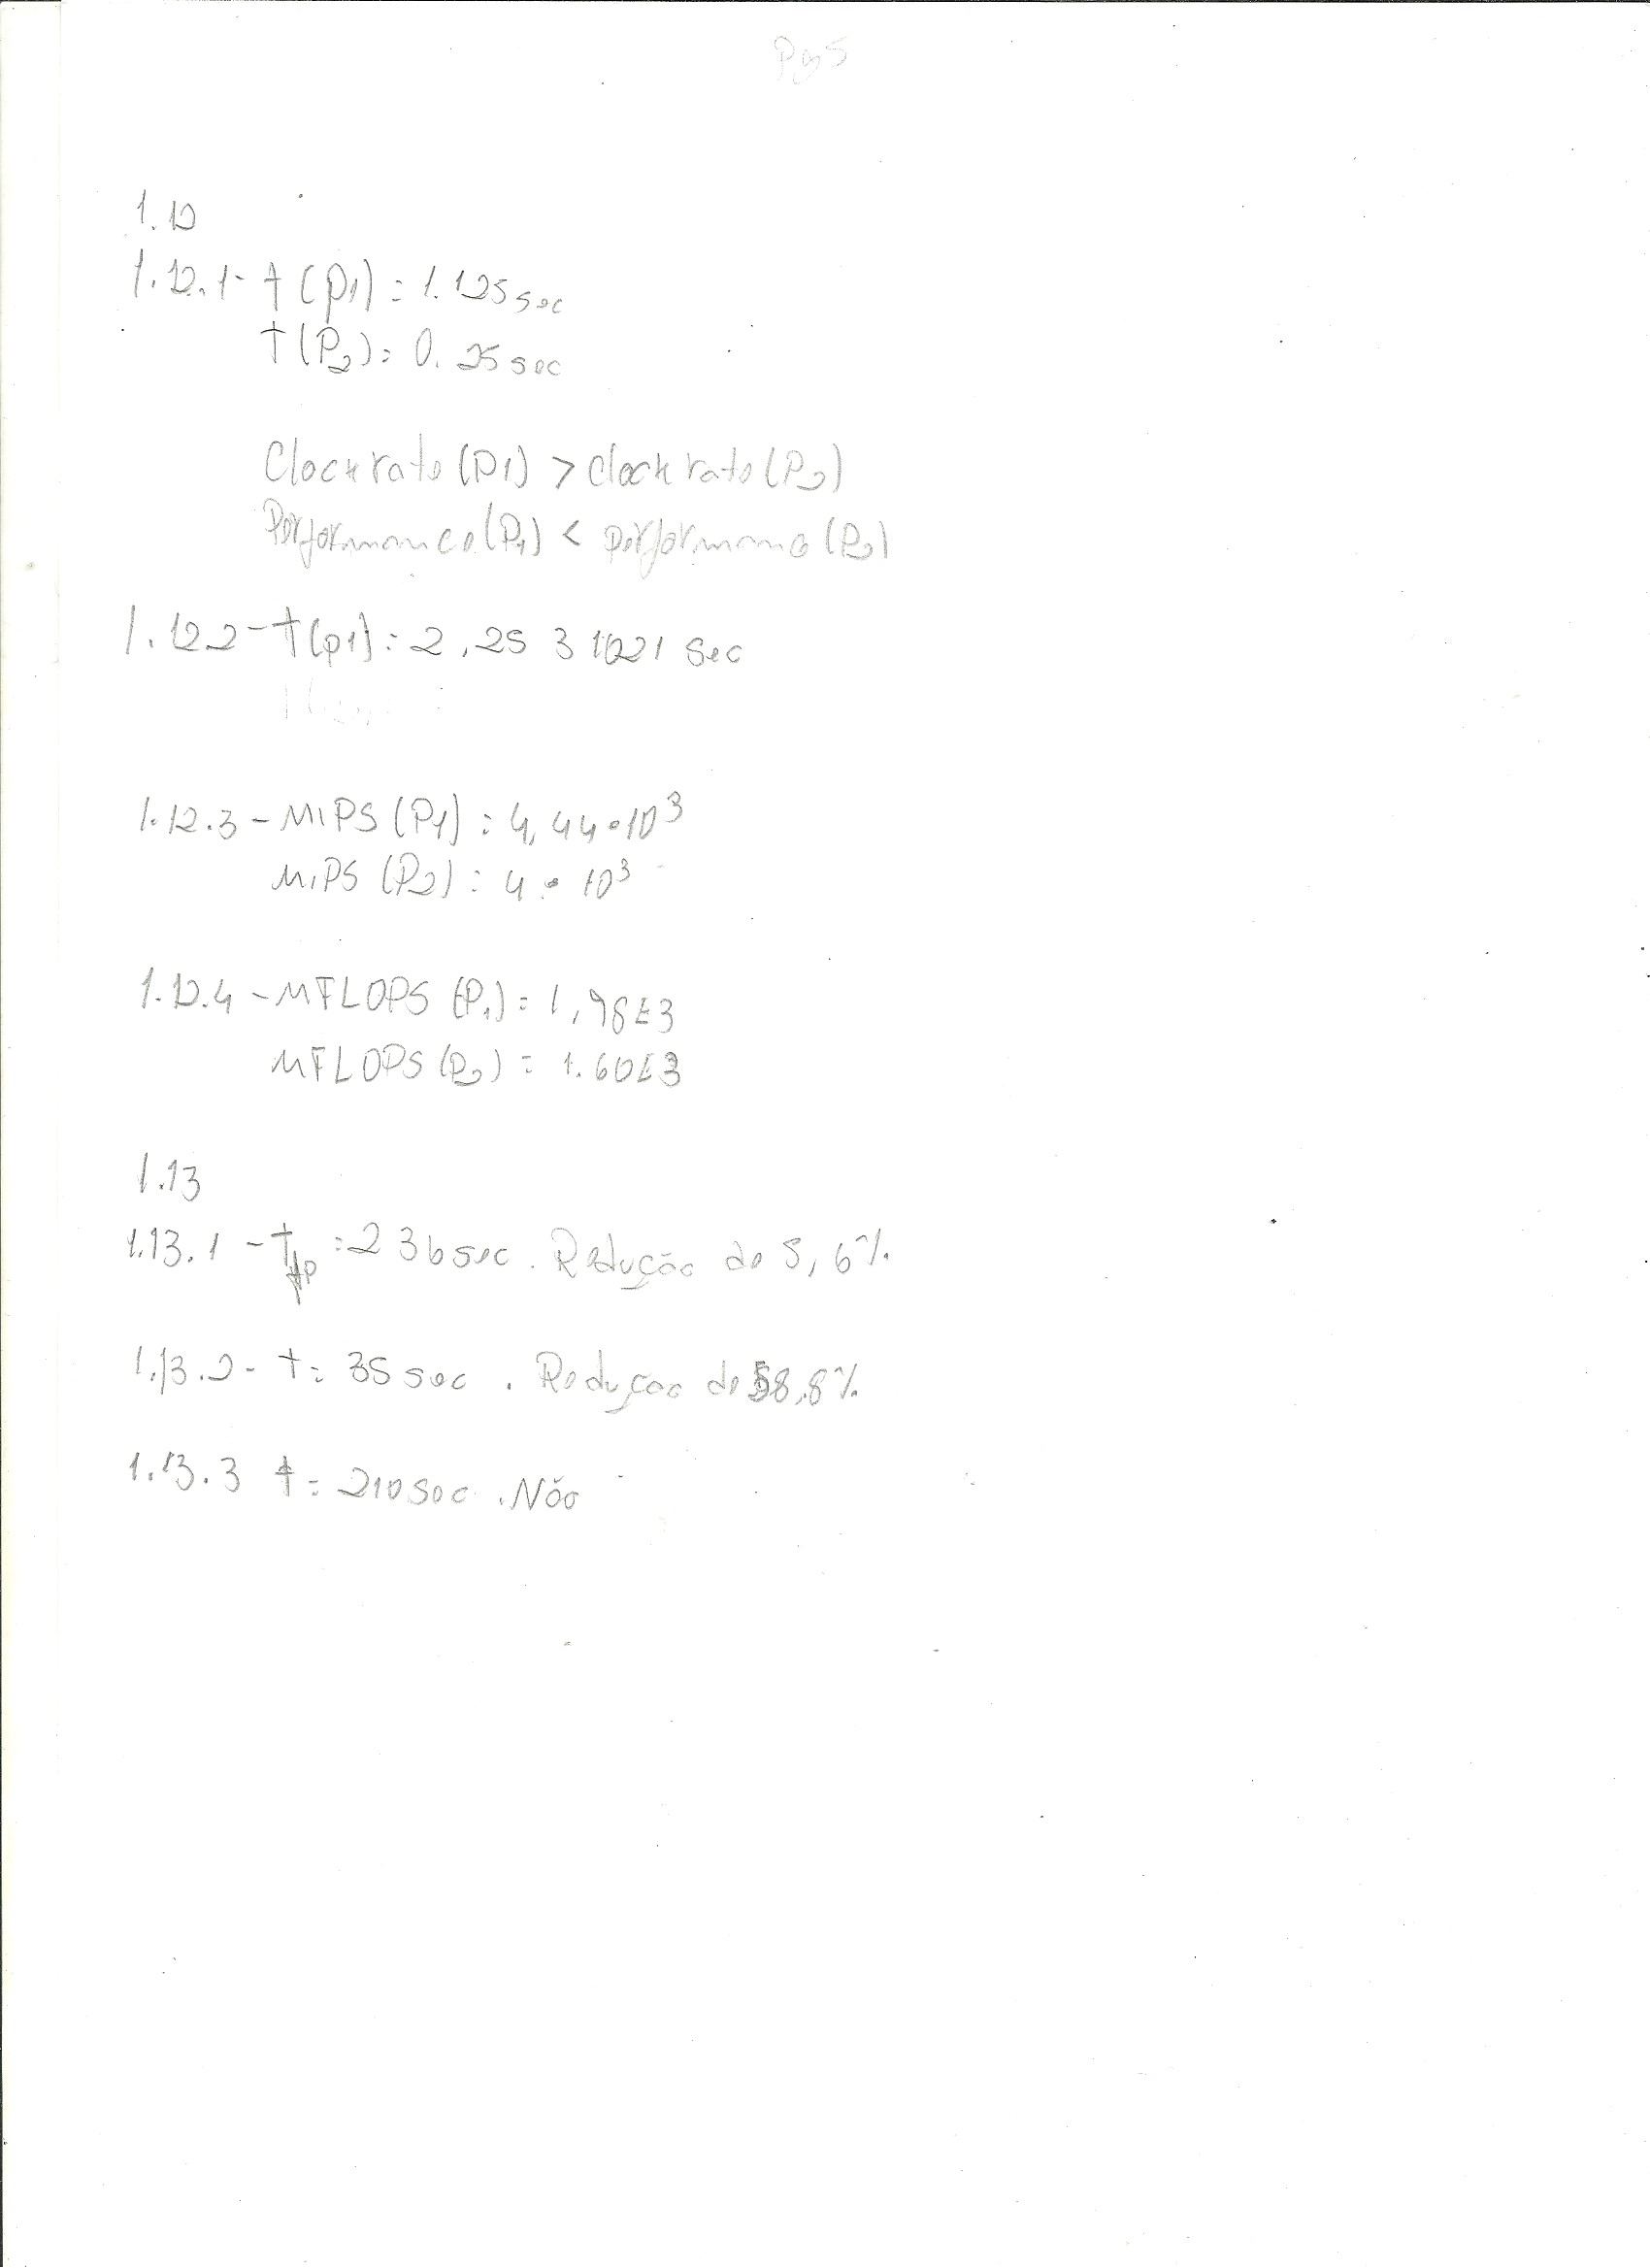 Pg 5
1.12
1.12.1- t(p1) = 1.125 sec
t(P2) = 0.25 sec
Clock rate (P1) > clock rate (P2)
Performance (P1) < performance (P2)
1.12.2 - t(p1) = 2,25 3 1021 sec
1.12.3 - MiPS (P1) = 4,44 • 10³
MiPS (P2) = 4 • 10³
1.12.4 - MFLOPS (P1) = 1,78E3
MFLOPS (P2) = 1.60E3
1.13
1.13.1 - tfp = 236 sec. Redução de 5,6%
1.13.2 - t = 35 sec. Redução de 58,8%
1.13.3 t = 210 sec. Não